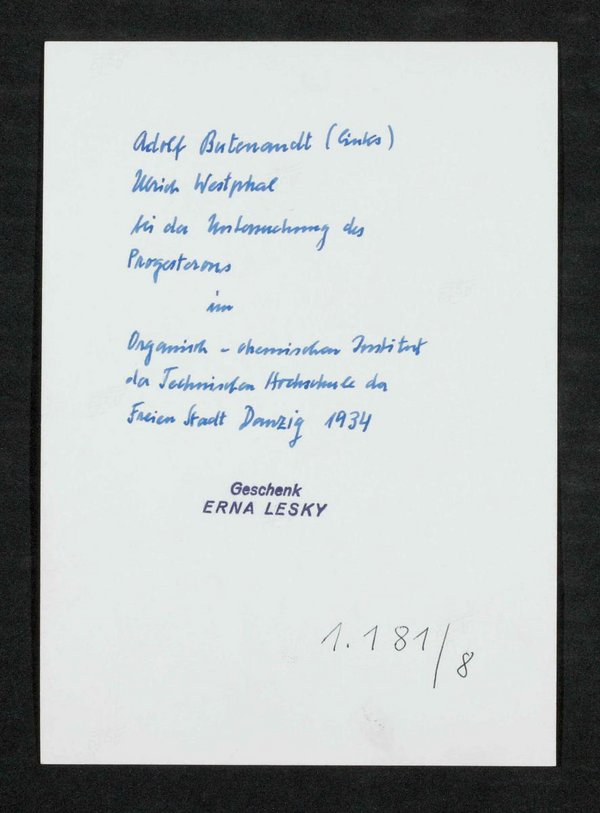 Adolf Butenandt (links)
Ulrich Westphal
bei der Untersuchung des
Progesterons
im
Organisch-chemischen Institut
der Technischen Hochschule der
Freien Stadt Danzig 1934
Geschenk
ERNA LESKY
1.181/8